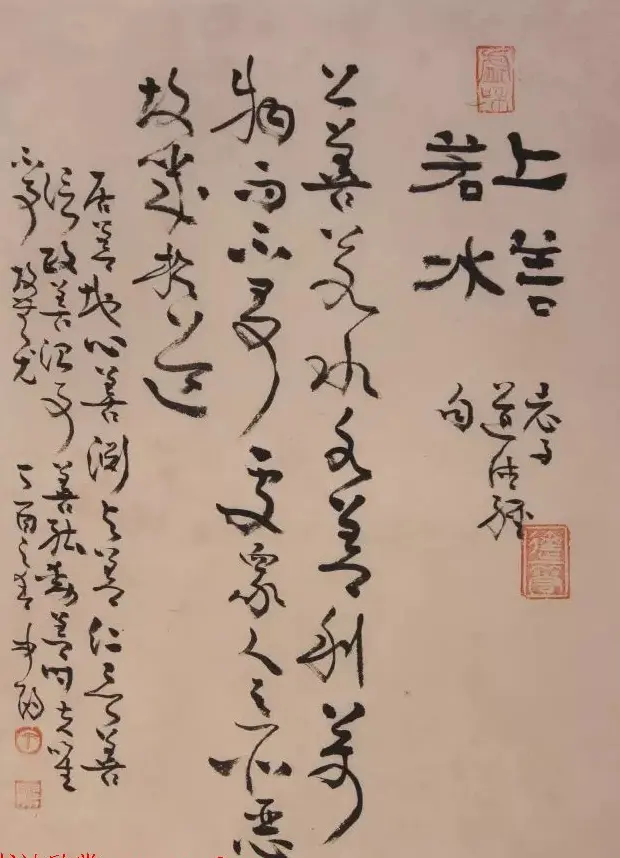 上善
若水
老子
道德經
句
上善若水水善利萬
物而不爭處眾人之所惡
故幾於道
居善地心善淵與善仁言善
信政善治事善能動善時夫唯
不爭故無尤 丁酉之春